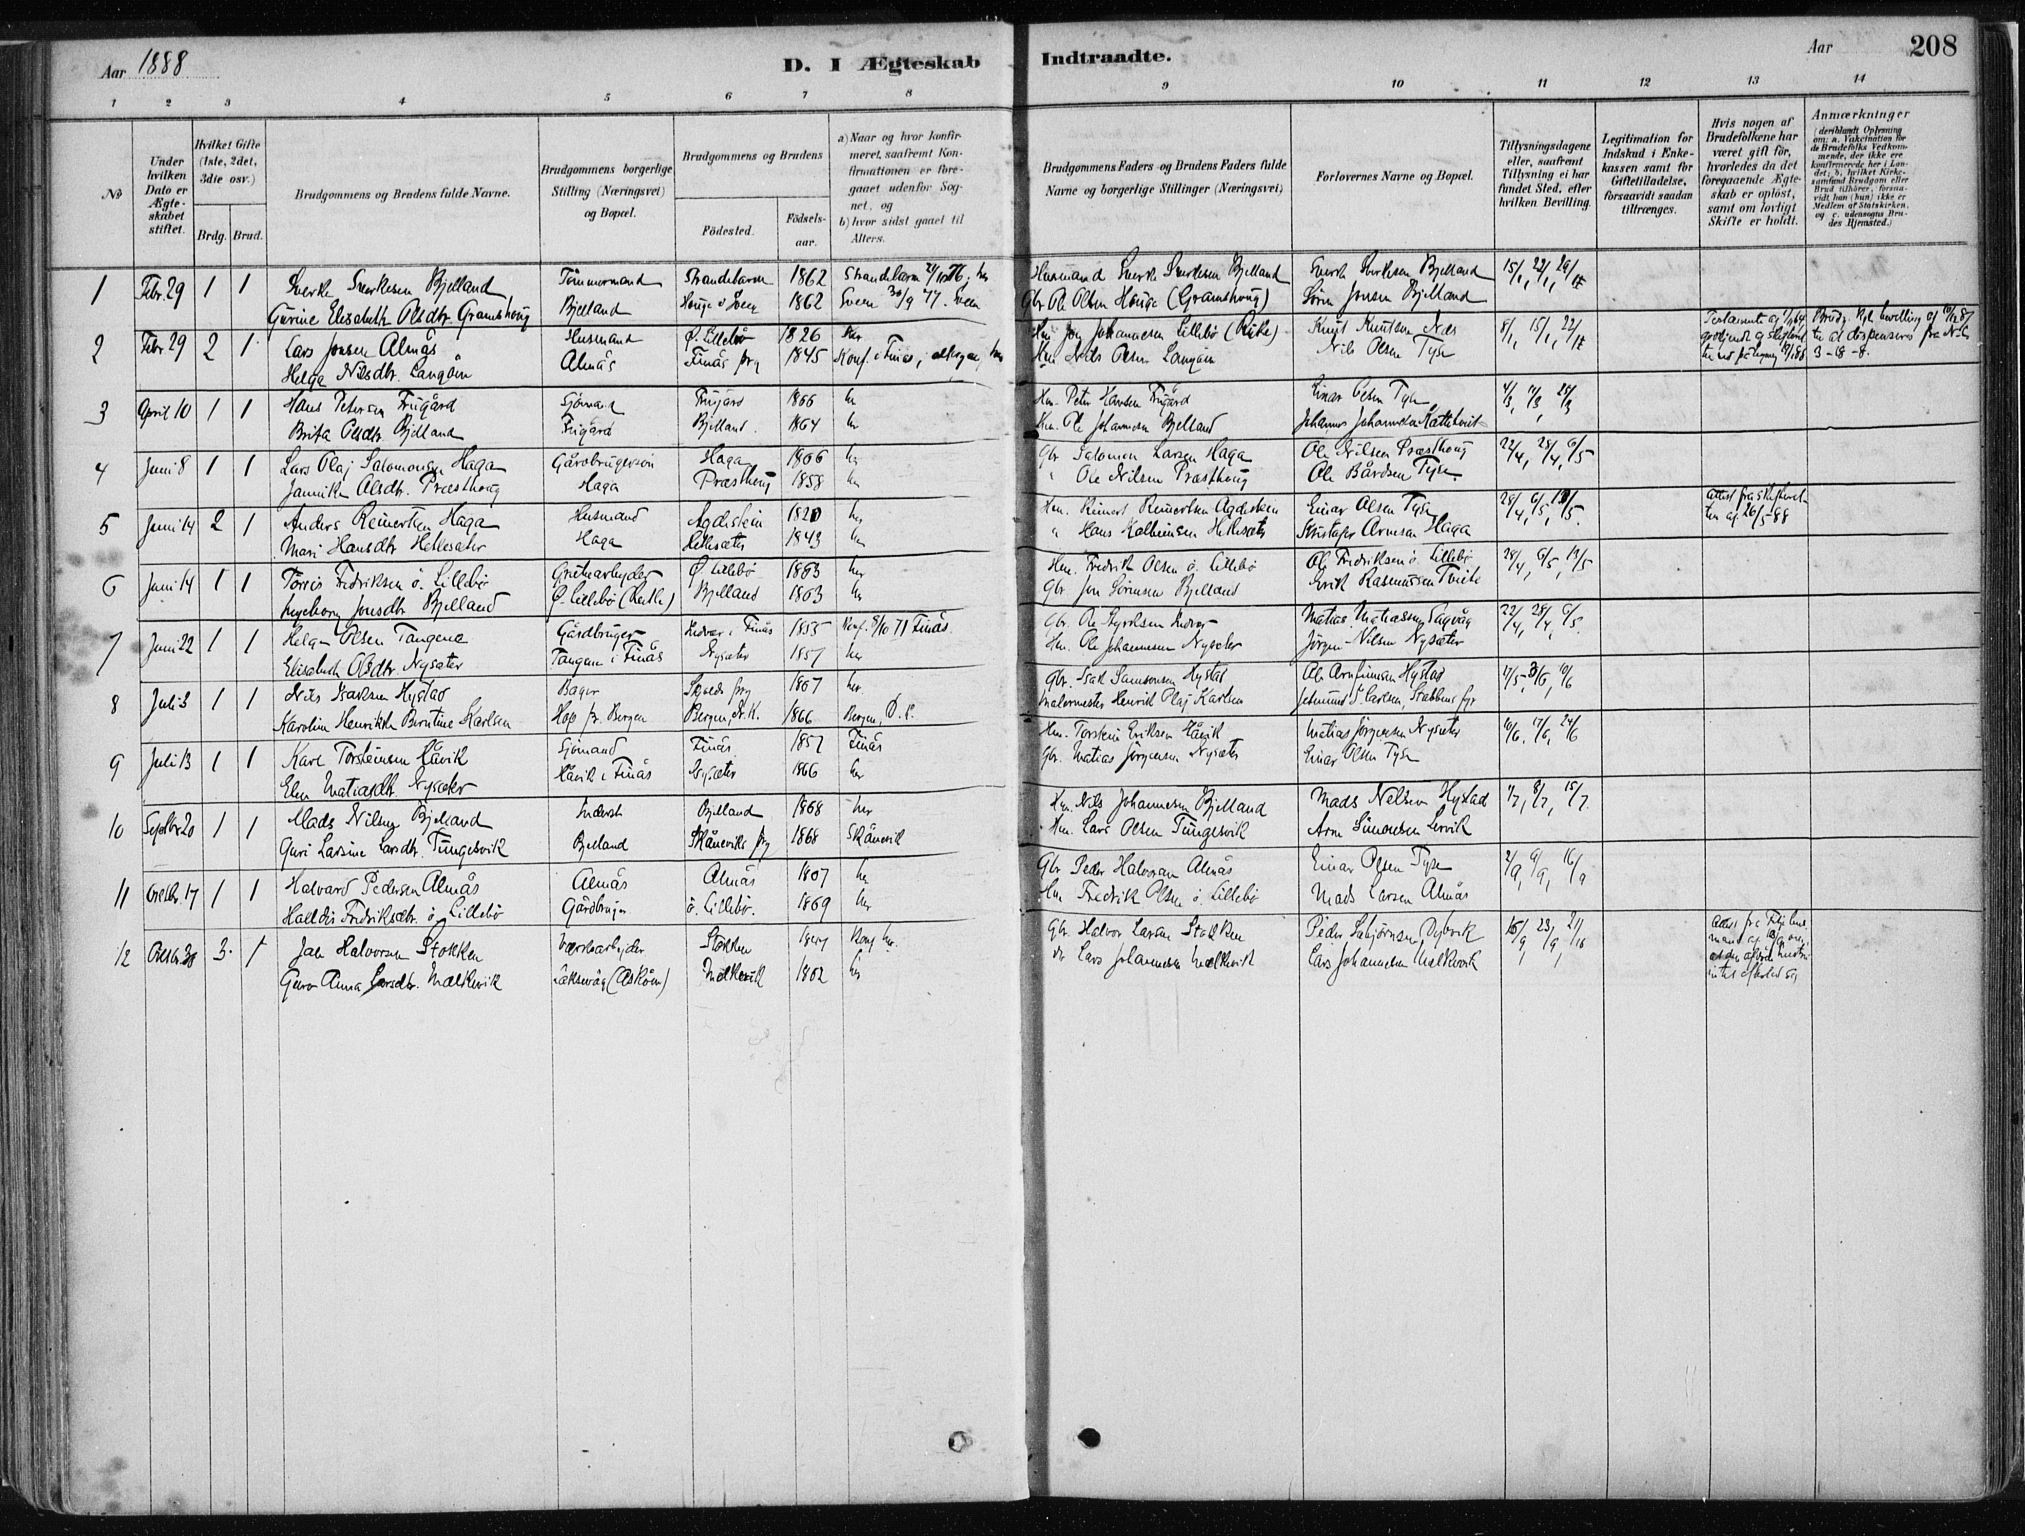 Aar 1888
D. I Ægteskab Indtraadte.
Aar 208
1 2 3 4 5 6 7 8 9 10 11 12 13 14
No
Under hvilken Dato er Ægteskabet stiftet.
Hvilket Gifte (1ste, 2det, 3die osv.)
Brdg. Brud.
Brudgommens og Brudens fulde Navne.
Brudgommens borgerlige Stilling (Næringsvei) og Bopæl.
Brudgommens og Brudens
Födested.
Födselsaar.
a) Naar og hvor konfirmeret, saafremt Konfirmationen er foregaaet udenfor Sognet, og
b) hvor sidst gaaet til Alters.
Brudgommens Faders og Brudens Faders fulde Navne og borgerlige Stillinger (Næringsvei)
Forlovernes Navne og Bopæl.
Tillysningsdagene eller, saafremt Tillysning ei har fundet Sted, efter hvilken Bevilling.
Legitimation for Indskud i Enkekassen samt for Giftetilladelse, forsaavidt saadan tiltrænges.
Hvis nogen af Brudefolkene har været gift för, hvorledes da det foregaaende Ægteskab er oplöst, samt om lovligt Skifte er holdt.
Anmærkninger (deriblandt Oplysning om: a. Vakcination for de Brudefolks Vedkommende, der ikke ere konfirmerede her i Landet; b. hvilket Kirkesamfund Brudgom eller Brud tilhörer, forsaavidt han (hun) ikke er Medlem af Statskirken, og c. udensogns Brudes Hjemsted.)
1 Febr. 29 1 1 Sverke Sverkesen Bjelland Tömmermand Strandebarm 1862 Strandebarm her Husmand Sverke Sverkesen Bjelland Sverke Sverkesen Bjelland 15/1, 22/1, 29/1
Gurine Elisabeth Olsdtr. Gramshoug Bjelland Houge i Sveen 1862 Sveen 30/9 77. Sveen Gbr. Ole Olsen Houge (Gramshoug) Sören Jonsen Bjelland
2 Febr 29 2 1 Lars Jonsen Almås Husmand Ö. Lillebö 1826 her Hm. Jon Johannesen Lillebö (Rükle) Knut Knutsen Næs 8/1, 15/1, 22/1
Helga Nilsdtr. Langöen Almås Finås prg 1845 Konf. i Finås, her Hm. Nils Olsen Langöen Nils Olsen Tyse 3-8-8.
3 April 10 1 1 Hans Petersen Frugård Sjömand Frugård 1866 her Hm. Peter Hansen Frugård Einar Olsen Tyse 4/3, 11/3, 18/3
Brita Olsdtr Bjelland Frugård Bjelland. 1864 her Hm. Ole Johannesen Bjelland Johannes Johannesen Kattetveit
4 Juni 8 1 1 Lars Olaj Salomonsen Haga Gårdbrugersön Haga 1866 her Gbr Salomon Larsen Haga Ole Nilsen Præsthoug 22/4, 28/4, 6/5
Janniken Olsdtr. Præsthoug Haga Præsthoug 1858 her " Ole Nilsen Præsthoug Ole Bårdsen Tyse
5 Juni 14 2 1 Anders Reinertsen Haga Husmand Agdestein 1820 her Hm. Reinert Reinertsen Agdestein Einar Olsen Tyse 28/4, 6/5, 13/5. Attest fra Skifteretten af 26/5-88
Mari Hansdtr Hetlesæter Haga Hetlesæter 1843 her " Hans Hetlesæter Kristofer Arnesen Haga
6 Juni 14 1 1 Torris Fredriksen ö. Lillebö Grubearbejder Ö. Lillebö 1863 her Hm. Fredrik Olsen ö. Lillebö Ole Fredriksen ö. Lillebö 28/4, 6/5, 13/5
Ingeborg Jonsdtr Bjelland Ö. Lillebö Bjelland 1863 her Gbr. Jon Sörensen Bjelland Erik Rasmussen Tveite
7 Juni 22 1 1 Helge Olsen Tangene Gårdbruger Indvær i Finås 1855 Konf. 8/10 71 Finås. Gbr. Ole Indvær Matias Matiassen Sagvåg 22/4, 28/4, 6/5.
Elisabeth Olsdtr. Nysæter Tangene i Finås Nysæter 1857 her Hm. Ole Johannesen Nysæter Jörgen Nilsen Nysæter
8 Juli 3 1 1 Nils Isaksen Hystad Bager prg 1867 her. Gbr. Isak Samsonsen Hystad Ole Arnfinnsen Hystad 17/5, 3/6, 10/6
Karoline Henrikke Berntine Karlsen Hop pr. Bergen Bergen, D.K. 1866 Bergen, D.K. Malermester Henrik Olaj Karlsen Carlsen, Stabbens fyr
9 Juli 13 1 1 Karl Torsteinsen Håvik Sjömand Finås 1857 Finås Hm. Torstein Eriksen Håvik Matias Jörgensen Nysæter 10/6, 17/6, 24/6
Elen Matiasdtr. Nysæter Håvik i Finås Nysæter 1866 her Gbr. Matias Jörgensen Nysæter Einar Olsen Tyse
10 Septbr. 20 1 1 Mads Nilsen Bjelland Inderst Bjelland 1868 her Hm. Nils Johannesen Bjelland Mads Nelsen Hystad 1/7, 8/7, 15/7.
Guri Larsine Larsdtr. Tungesvik Bjelland Skåneviks prg 1868 Skånevik Hm. Lars Olsen Tungesvik Arne Simonsen Lervik
11 Octbr. 17 1 1 Halvard Pedersen Almås Almås Almås 1867 her Gbr Peder Halvorsen Almås Einar Olsen Tyse 2/9, 9/9, 16/9
Halldis Fredriksdtr. ö. Lillebö Gårdbruger ö. Lillebö. 1869 her Hm Fredrik Olsen ö. Lillebö Mads Larsen Almås
12 Octbr. 30 3. 1 Jan Halvorsen Stokken Værksarbejder Stokken Konf. her. Gbr. Halvor Larsen Stokken Peder Dybvik 16/9, 23/9,
Guro Anna Larsdtr. Mælkevik Mælkevik 1862 her do Lars Johannesen Mælkevik Lars Johannesen Mælkevik